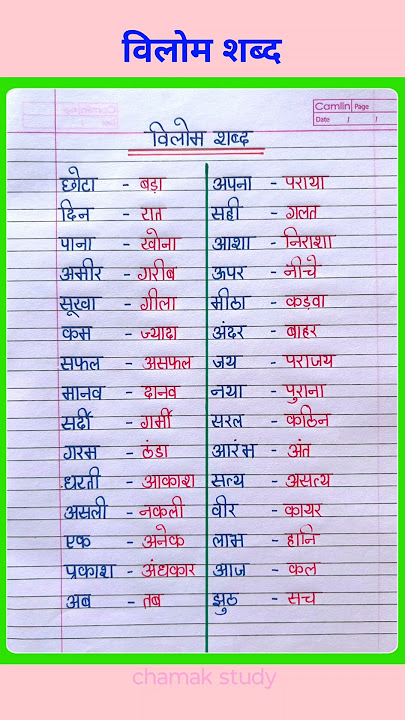 विलोम शब्द
Camlin Page
Date / /
विलोम शब्द
छोटा - बड़ा
दिन - रात
पाना - खोना
अमीर - गरीब
सूखा - गीला
कम - ज्यादा
सफल - असफल
मानव - दानव
सर्दी - गर्मी
गरम - ठंडा
धरती - आकाश
असली - नकली
एक - अनेक
प्रकाश - अंधकार
अब - तब
अपना - पराया
सही - गलत
आशा - निराशा
ऊपर - नीचे
मीठा - कड़वा
अंदर - बाहर
जय - पराजय
नया - पुराना
सरल - कठिन
आरंभ - अंत
सत्य - असत्य
वीर - कायर
लाभ - हानि
आज - कल
झुठ - सच
chamak study